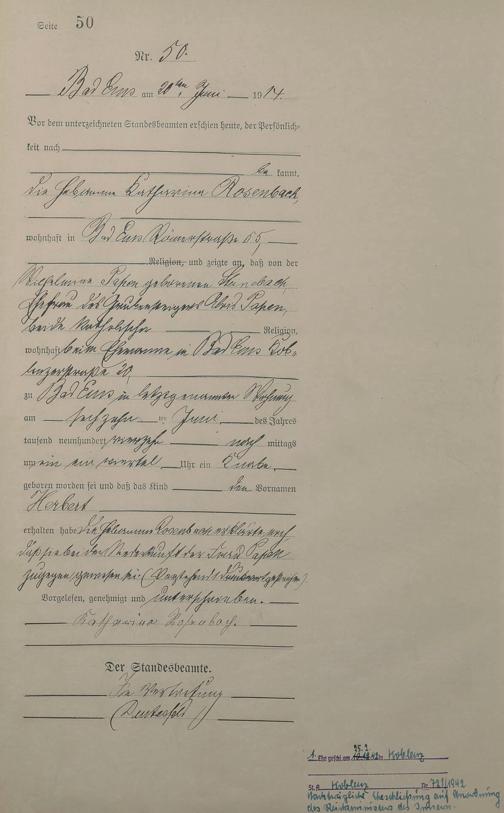 Seite 50
Nr. 50.
Bad Ems am 20ten Juni 1914.
Vor dem unterzeichneten Standesbeamten erschien heute, der Persönlich-
keit nach
be kannt,
die Hebamme Katharina Rosenbach,
wohnhaft in Bad Ems Römerstraße 55,
Religion, und zeigte an, daß von der
Wilhelmine Papen geborenen
Ehefrau des Grubensteigers Alois Papen,
beide katholischer Religion,
wohnhaft beim Ehemanne in Bad Ems Cob-
lenzerstraße 20,
zu Bad Ems in letztgenannter Wohnung
am sechzehn ten Juni des Jahres
tausend neunhundert vierzehn nach mittags
um ein ein viertel Uhr ein Knabe
geboren worden sei und daß das Kind den Vornamen
Herbert
erhalten habe. Die Hebamme Rosenbach erklärte noch
daß sie bei der Niederkunft der Frau Papen
zugegen gewesen sei. (Vorstehend
Vorgelesen, genehmigt und unterschrieben.
Katharina Rosenbach.
Der Standesbeamte.
In Vertretung
1. Ehe geschl. am 25.2. in Koblenz
St. A. Koblenz Nr. 721/1942
Nachträgliche Eheschließung auf Anordnung
des Reichsministers des Innern.